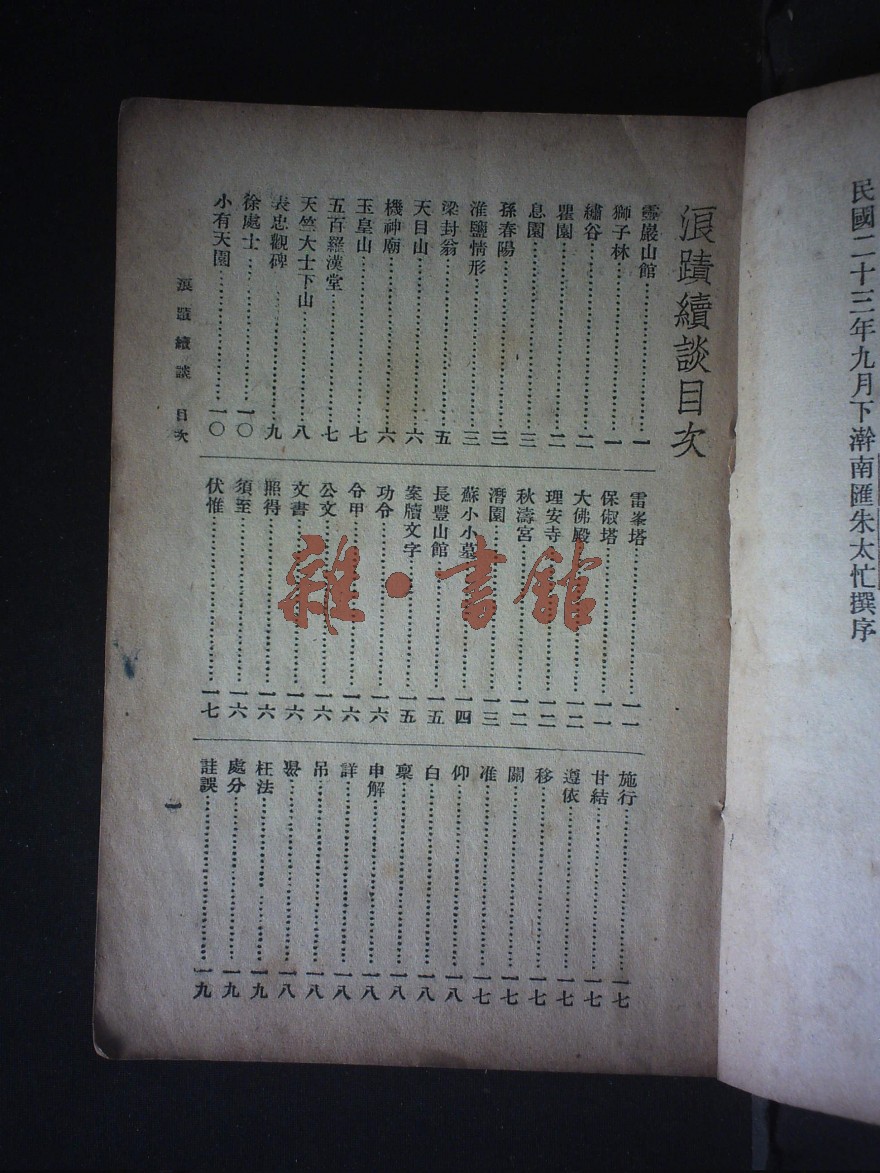 民國二十三年九月下澣南匯朱太忙撰序
浪蹟續談目次
靈巖山館……一
獅子林……一
繡谷……二
瞿園……二
息園……三
孫春陽……三
淮鹽情形……三
梁封翁……五
天目山……六
機神廟……六
玉皇山……七
五百羅漢堂……七
天竺大士下山……八
表忠觀碑……九
徐處士……一〇
小有天園……一〇
雷峯塔……一一
保俶塔……一一
大佛殿……一二
理安寺……一二
秋濤宮……一二
潛園……一三
蘇小小墓……一四
長豐山館……一五
案牘文字……一五
功令……一六
令甲……一六
公文……一六
文書……一六
照得……一六
須至……一六
伏惟……一七
施行……一七
甘結……一七
遵依……一七
移……一七
關……一七
准……一七
仰……一八
白……一八
稟……一八
申解……一八
詳……一八
吊……一八
……一八
枉法……一九
處分……一九
詿誤……一九
浪蹟續談 目次
一
雜·書館